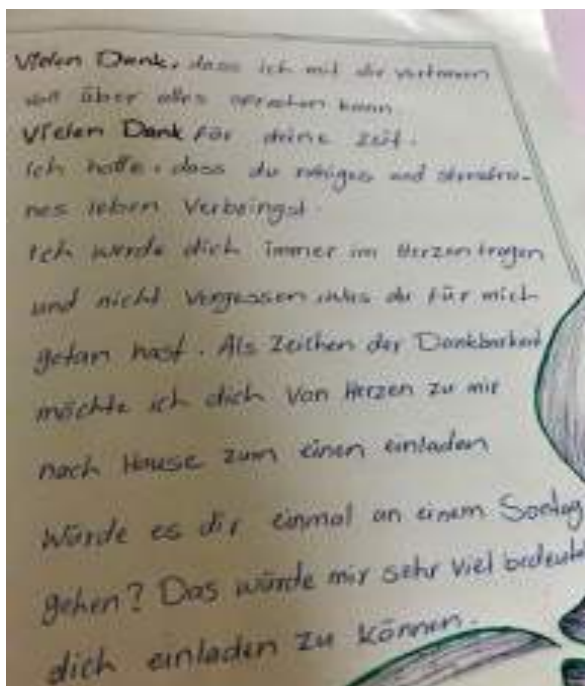 Vielen Dank, dass ich mit dir vertrauen
voll über alles sprechen kann.
Vielen Dank für deine Zeit.
Ich hoffe, dass du ruhiges und
nes leben Verbringst.
Ich werde dich immer im Herzen tragen
und nicht Vergessen, was du für mich
getan hast. Als Zeichen der Dankbarkeit
möchte ich dich Von Herzen zu mir
nach Hause zum einen einladen
Würde es dir einmal an einem Sontag
gehen? Das würde mir sehr viel bedeuten
dich einladen zu können.